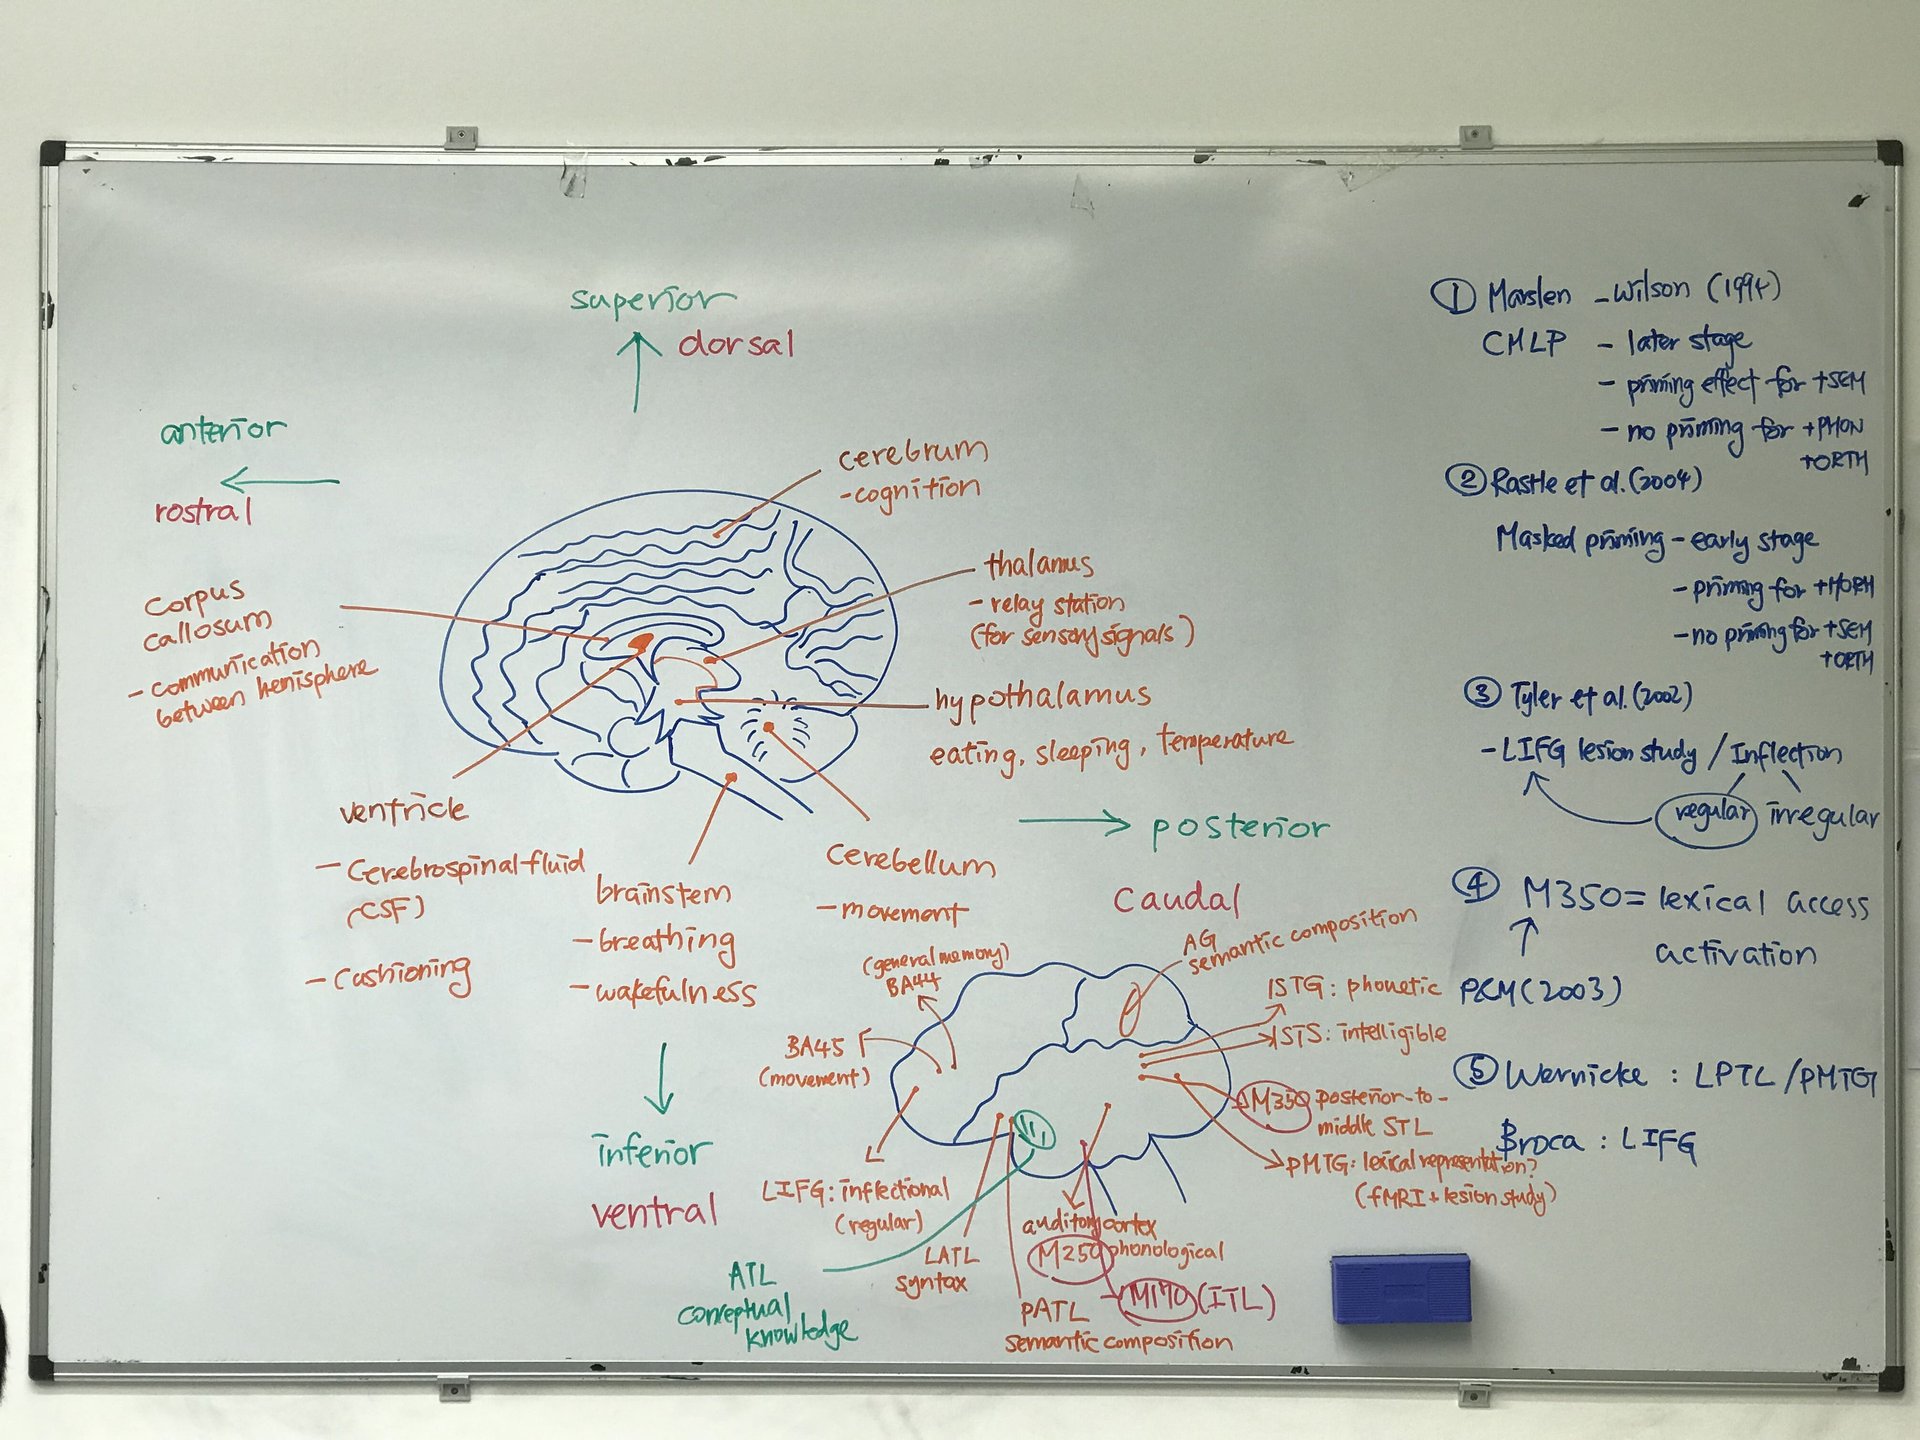 superior
dorsal
anterior
rostral
cerebrum
-cognition
thalamus
- relay station
(for sensory signals)
corpus
callosum
- communication
between hemisphere
hypothalamus
eating, sleeping, temperature
ventricle
- Cerebrospinal fluid
(CSF)
- cushioning
brainstem
- breathing
- wakefulness
cerebellum
- movement
posterior
caudal
inferior
ventral
(general memory)
BA44
BA45
(movement)
AG
semantic composition
lSTG: phonetic
lSTS: intelligible
M350 posterior-to-
middle STL
pMTG: lexical representation?
(fMRI + lesion study)
LIFG: inflectional
(regular)
ATL
conceptual
knowledge
LATL
syntax
auditory cortex
M250 phonological
M170 (ITL)
pATL
semantic composition
① Marslen - Wilson (1994)
CMLP - later stage
- priming effect for +SEM
- no priming for +PHON
+ORTH
② Rastle et al. (2004)
Masked priming - early stage
- priming for
- no priming for +SEM
+ORTH
③ Tyler et al. (2002)
- LIFG lesion study / Inflection
regular irregular
④ M350 = lexical access
activation
(2003)
⑤ Wernicke : LPTL / pMTG
Broca : LIFG